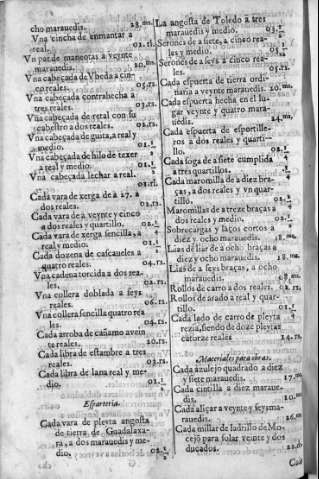 cho marauedis. 28.ms.
Vna cincha de enmantar a
real. 01.rl.
Vn par de maneotas a veynte
marauedis. 20.ms.
Vna cabeçada de Vbeda a cin-
co reales. 05.rs.
Vna cabeçada contrahecha a
tres reales. 03.rs.
Vna cabeçada de retal con su
cabestro a dos reales. 02.rs.
Vna cabeçada de guita, a real y
medio. 01.½
Vna cabeçada de hilo de texer
a real y medio. 01.½
Vna cabeçada lechar a real.
01.rl.
Cada vara de xerga de a 27. a
dos reales. 02.rs.
Cada vara de a veynte y cinco
a dos reales y quartillo. 02.¼
Cada vara de xerga sencilla, a
real y medio. 01.½
Cada dozena de cascaueles a
quatro reales. 04.rs.
Vna cadena torcida a dos rea-
les. 02.rs.
Vna collera doblada a seys
reales. 06.rs.
Vna collera sencilla quatro rea
les. 04.rs.
Cada arroba de cañamo a vein
te reales. 20.rs.
Cada libra de estambre a tres
reales. 03.rs.
Cada libra de lana real y me-
dio. 01.½
Esparteria.
Cada vara de pleyta angosta
de tierra de Guadalaxa-
ra, a dos marauedis y me-
dio. 02.½
La angosta de Toledo a tres
marauedis y medio. 03.½
Serones de a siete, a cinco rea-
les y medio. 05.½
Serones de a seys a cinco rea-
les. 05.rs.
Cada espuerta de tierra ordi-
naria a veynte marauedis. 20.ms.
Cada espuerta hecha en el lu-
gar veynte y quatro mara-
uedis. 24.ms.
Cada espuerta de esportille-
ros a dos reales y quarti-
llo. 02.¼
Cada soga de a siete cumplida
a tres quartillos. ¾
Cada maromilla de a diez bra-
ças, a dos reales y vn quar-
tillo. 02.¼
Maromillas de a treze braças a
dos reales y medio. 02.½
Sobrecargas y laços cortos a
diez y ocho marauedis. 18.ms.
Lias de liar de a ocho braças a
diez y ocho marauedis. 18.ms.
Lias de a seys braças, a ocho
marauedis.
Rollos de carro a dos reales. 02.rs.
Rollos de arado a real y quar-
tillo. 01.¼
Cada lado de carro de pleyta
rezia, siendo de doze pleytas
catorze reales 14.rs.
Materiales para obras.
Cada azulejo quadrado a diez
y siete marauedis. 17.ms.
Cada cintilla a diez maraue-
dis. 10.ms.
Cada aliçar a veynte y seys ma-
rauedis. 26.ms.
Cada millar de ladrillo de Mo-
cejo para solar veinte y dos
ducados.
Cada